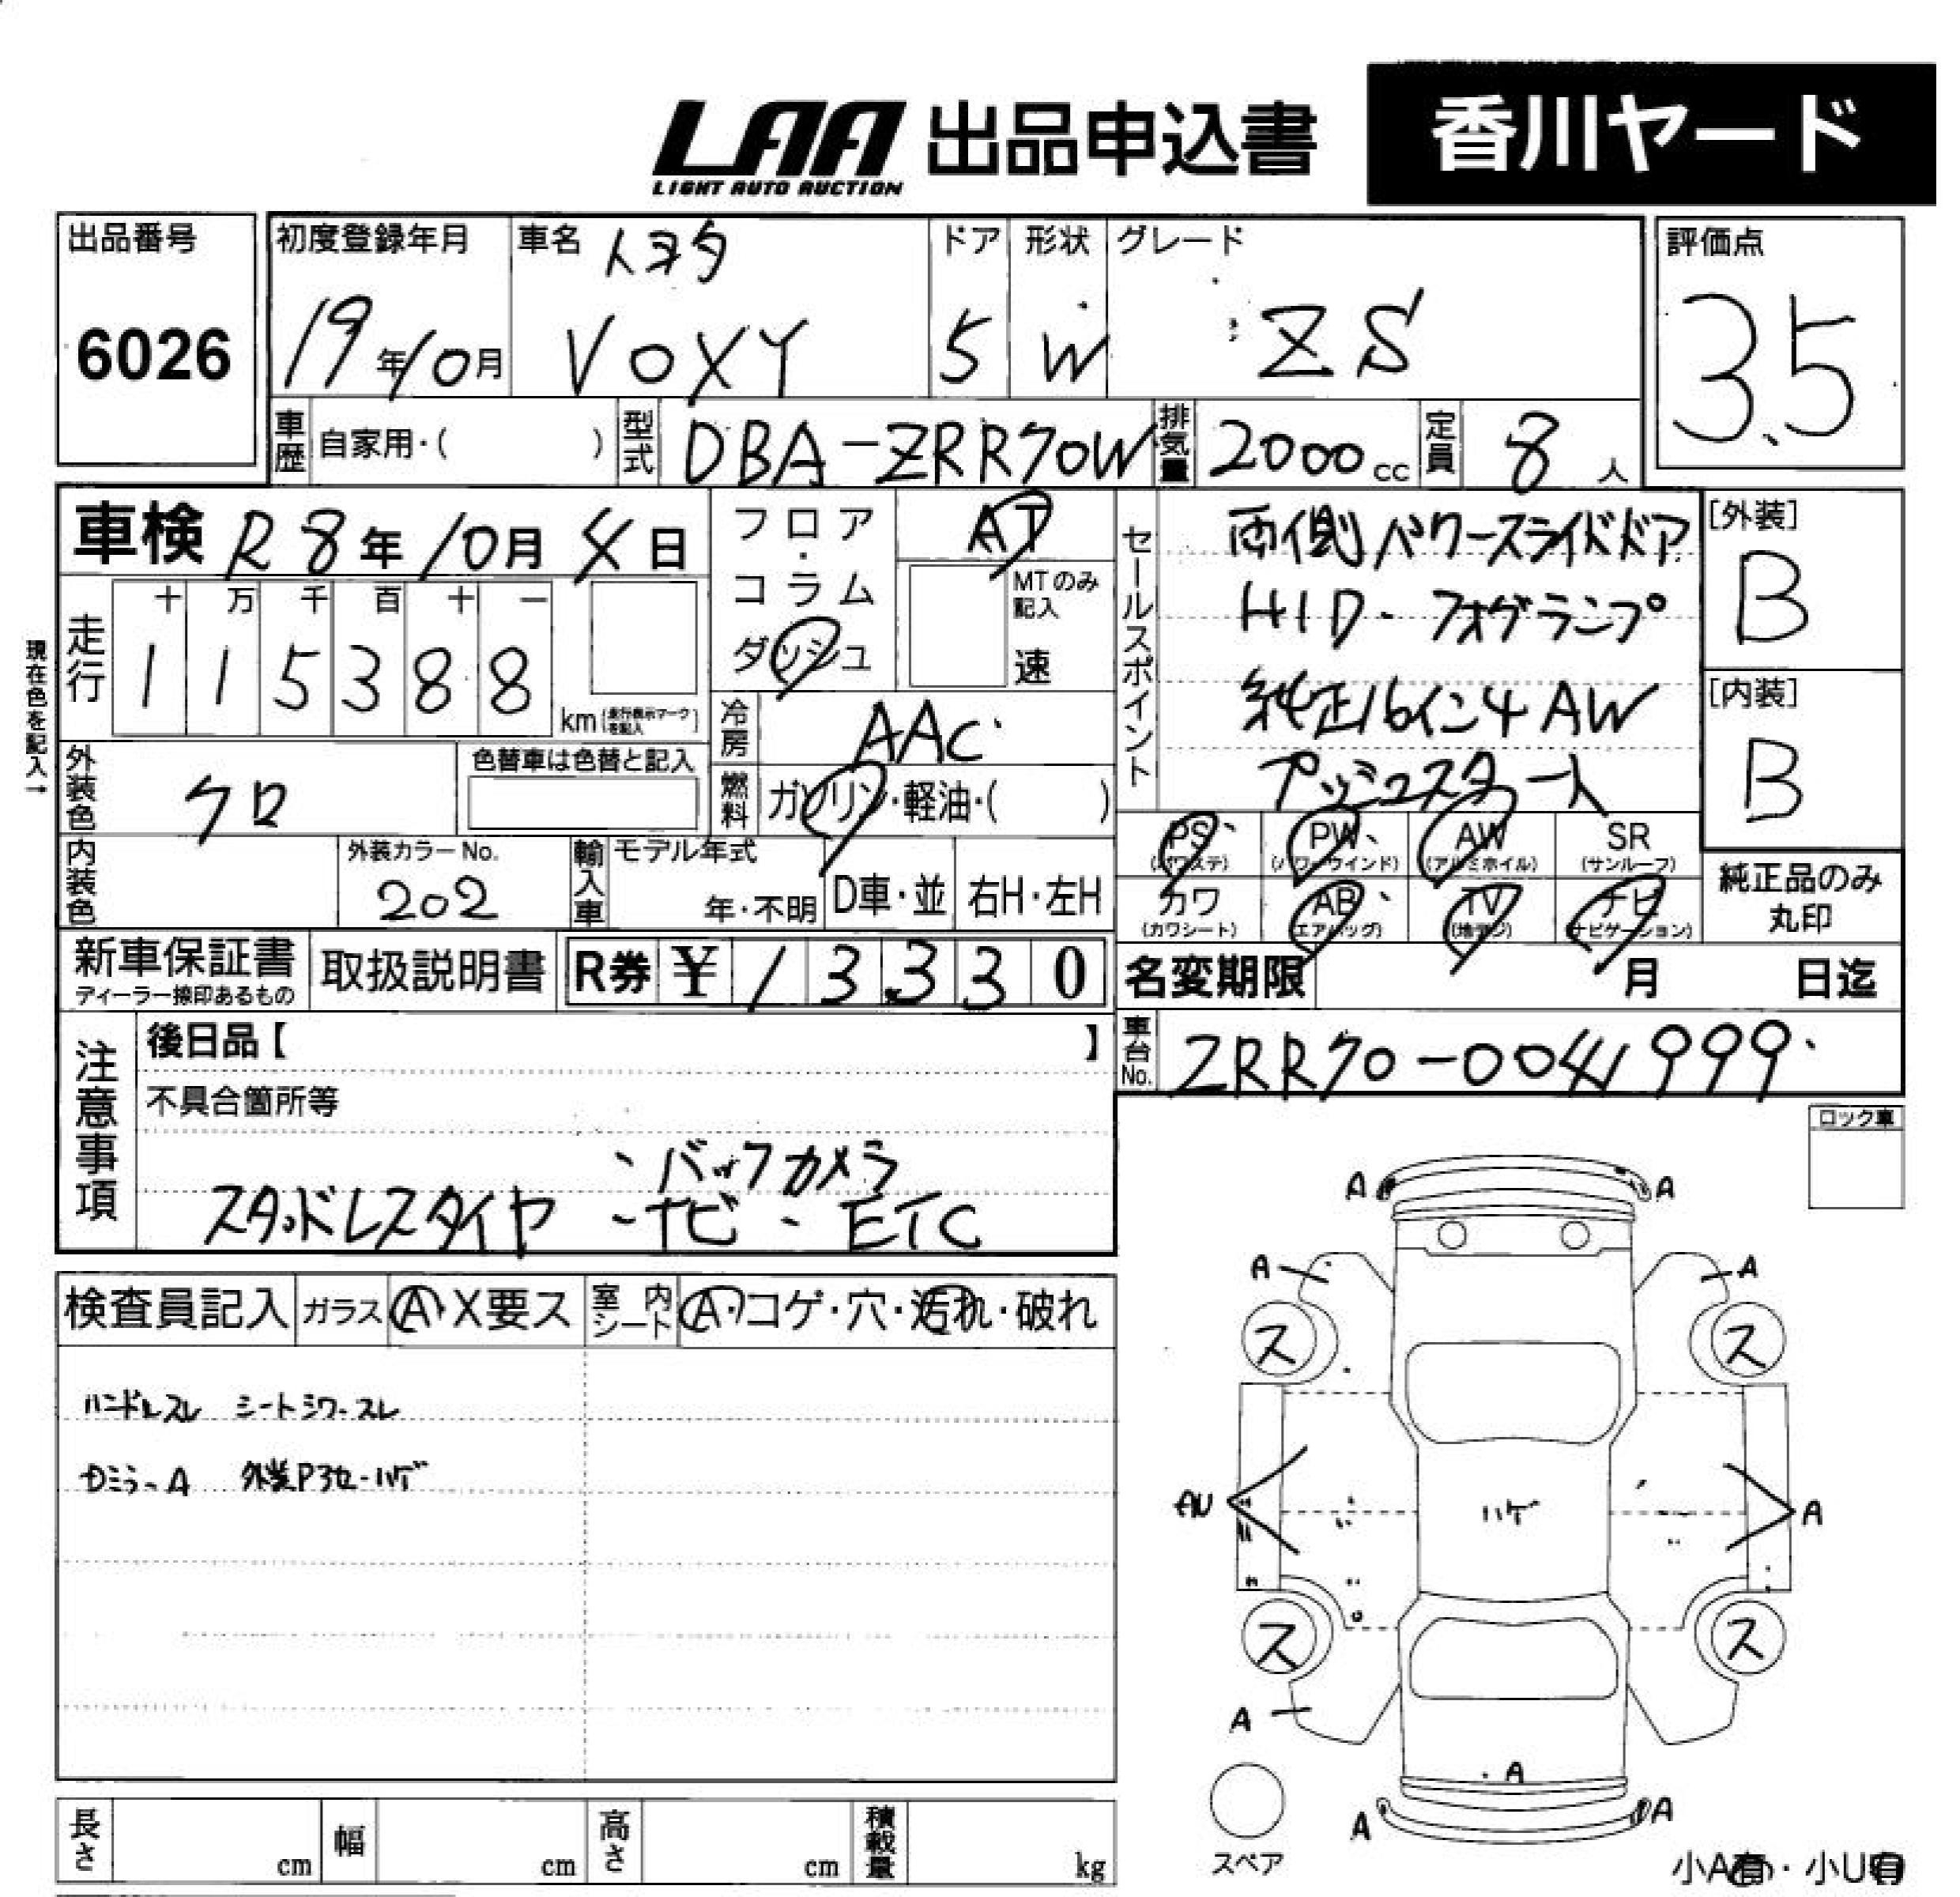 LAA 出品申込書 香川ヤード
LIGHT AUTO AUCTION
出品番号 初度登録年月 車名 トヨタ ドア 形状 グレード 評価点
6026 19年10月 VOXY 5 W ZS 3.5
車歴 自家用・( ) 型式 DBA-ZRR70W 排気量 2000cc 定員 8人
車検 R8年10月4日
フロア・コラム
ダッシュ
AT
MTのみ記入
速
セールスポイント
両側パワースライドドア
HID・フォグランプ
純正16インチAW
プッシュスタート
[外装]
B
[内装]
B
現在色を記入→
走行 十 万 千 百 十 一
1 1 5 3 8 8 km(走行表示マークを記入)
冷房 AAC
外装色 クロ 色替車は色替と記入
燃料 ガソリン・軽油・( )
内装色 外装カラーNo. 202
輸入車 モデル年式 年・不明 D車・並 右H・左H
PS (パワステ) PW (パワーウインド) AW (アルミホイル) SR (サンルーフ)
カワ (カワシート) AB (エアバッグ) TV (地デジ) ナビ (ナビゲーション)
純正品のみ
丸印
新車保証書 取扱説明書 R券 ¥ 13,330
ディーラー捺印あるもの
名変期限 月 日迄
車台No. ZRR70-0041999
注意事項
後日品【 】
不具合箇所等
・バックカメラ
スタッドレスタイヤ ・ナビ・ETC
ロック車
検査員記入 ガラス A・X要ス 室内シート A・コゲ・穴・汚れ・破れ
ハンドルスレ シートシワ・スレ
Dミラ-A 外装Pヨセ・ハゲ
A A
A A
ス ス
AU ハゲ A
ス ス
A
A
A A
スペア
小A有・小U有
長さ cm 幅 cm 高さ cm 積載量 kg